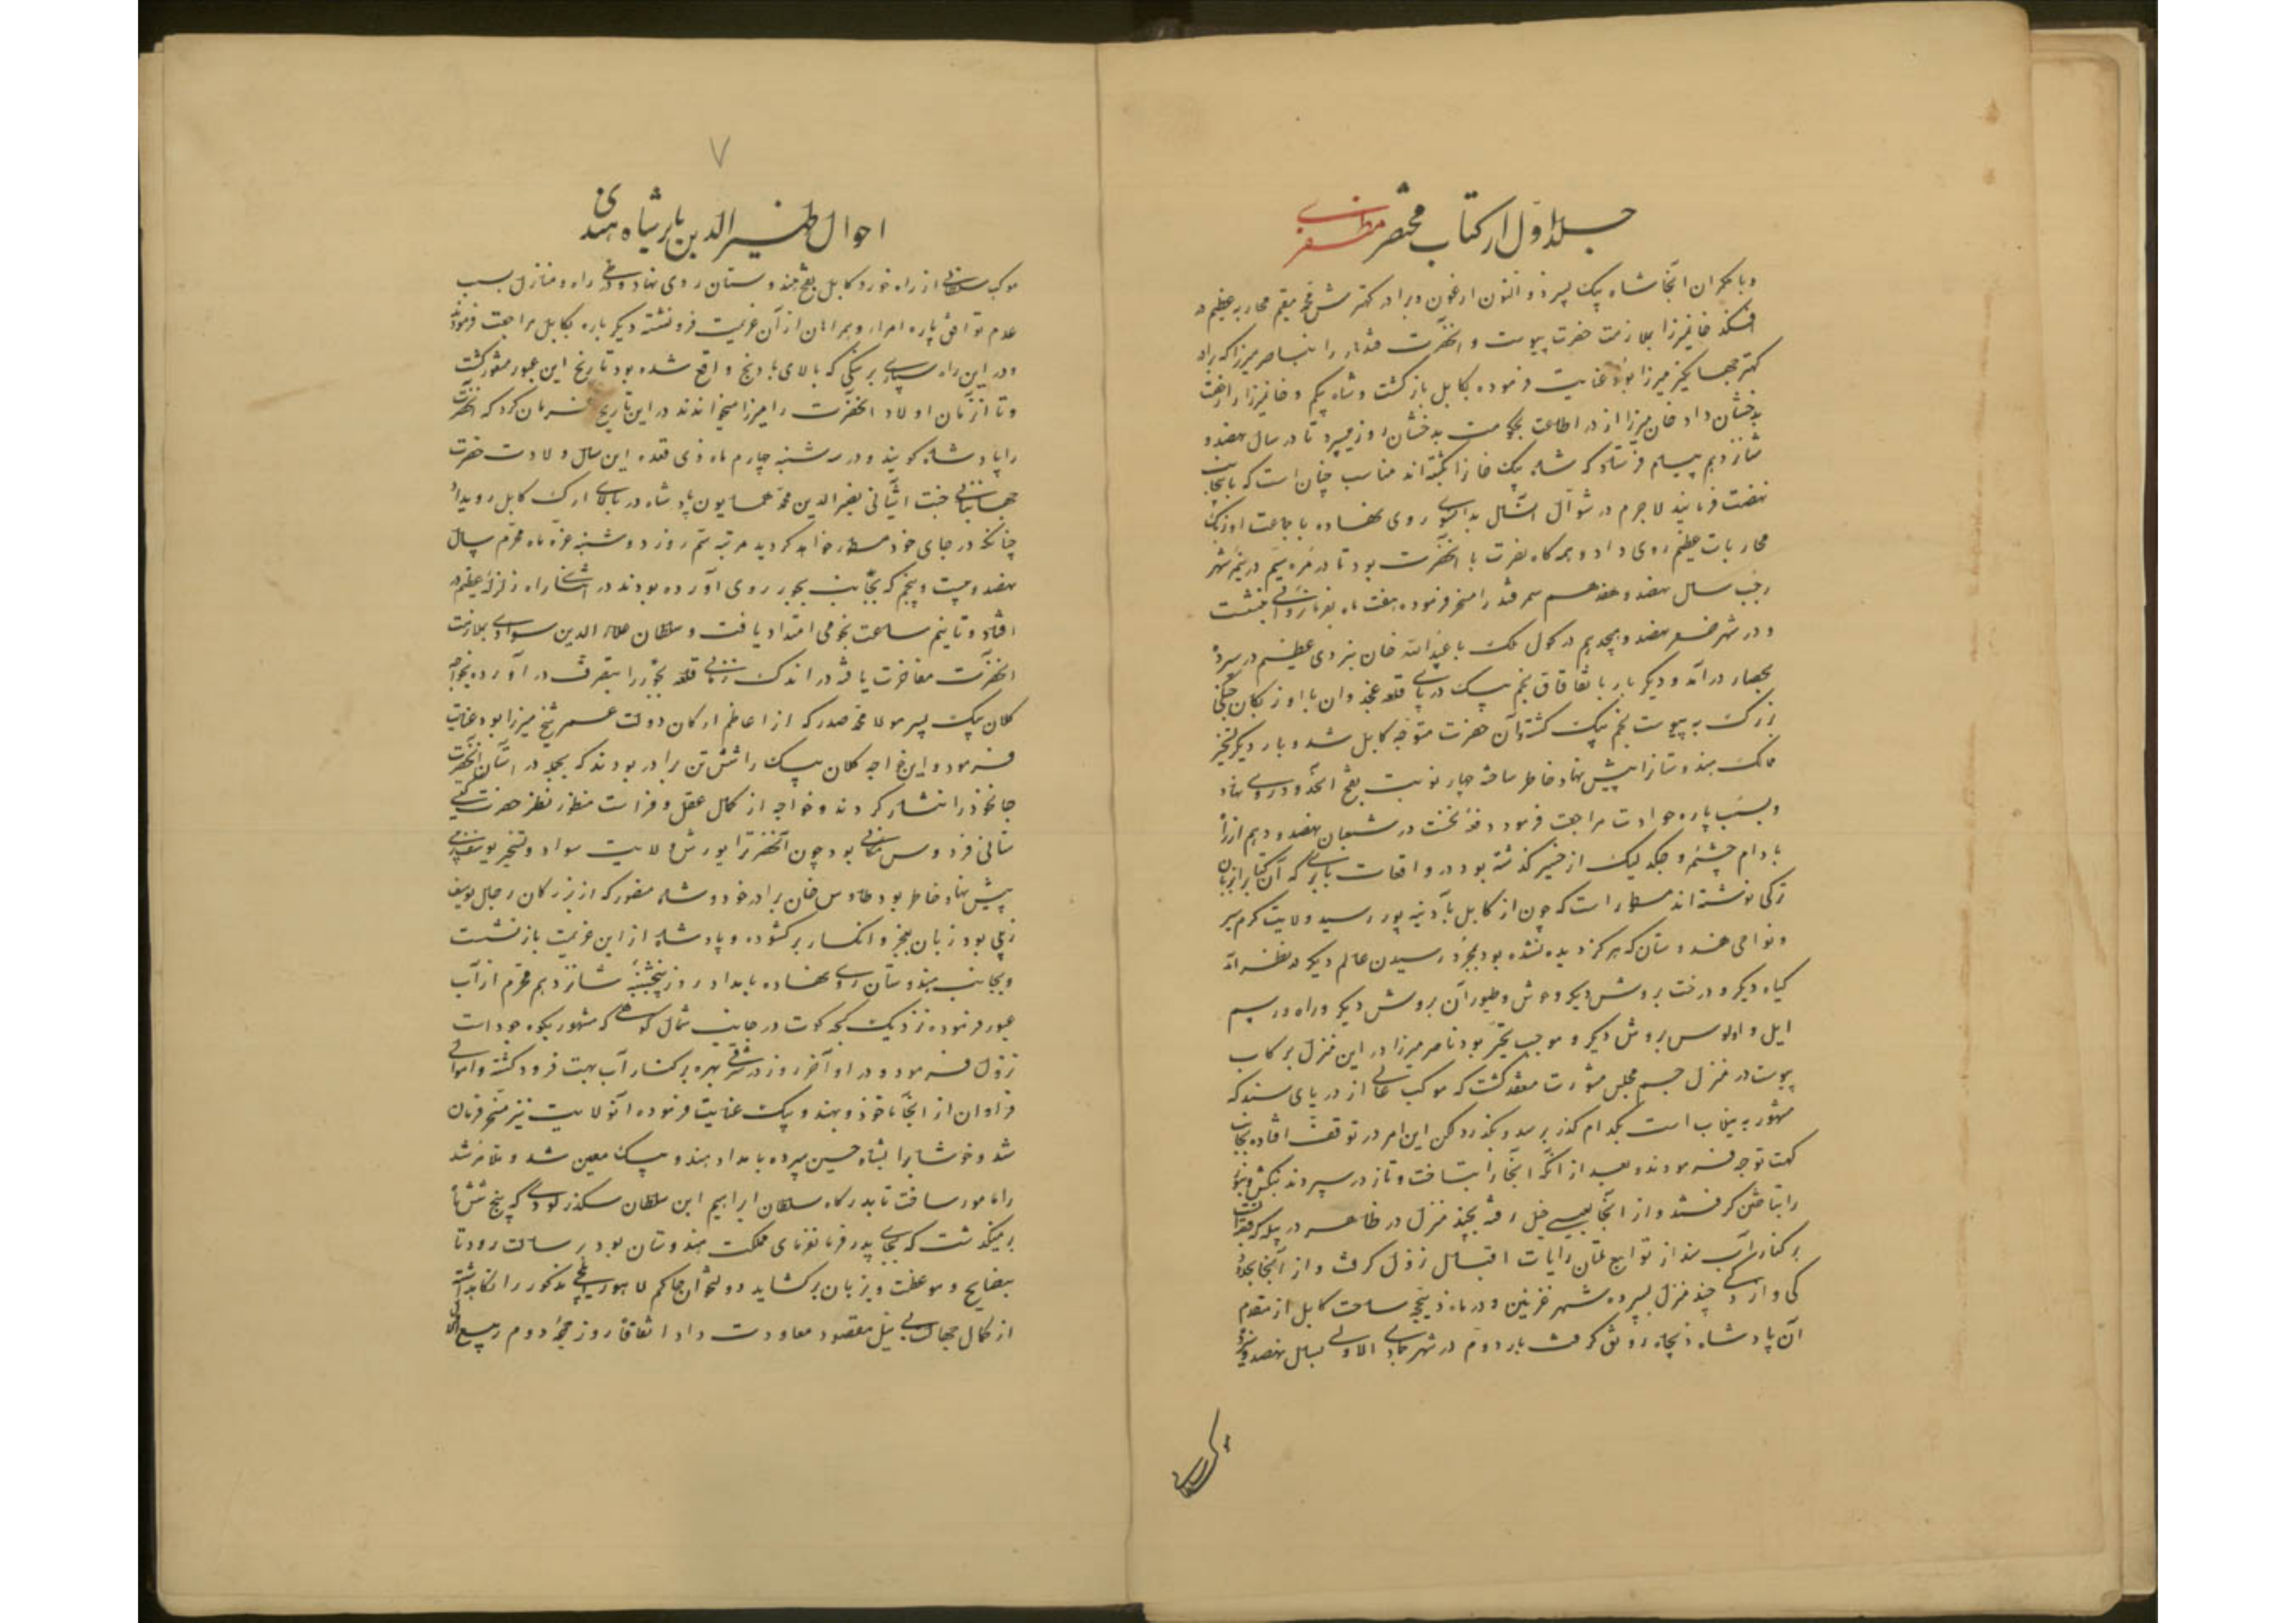 جلد اول از کتاب مختصر مظفری
و با حکمران آنجا شاه بیک پسر ذوالنون ارغون و برادر کهترش محمد مقیم محاربه عظیم در
افکند خانمیرزا بملازمت حضرت پیوست و آنحضرت قندهار را بناصر میرزا که برادر
کهتر جهانگیر میرزا بود عنایت فرموده بکابل بازگشت و شاه بیگم و خانمیرزا را رخصت
بدخشان داد خان میرزا از در اطاعت بحکومت بدخشان روز میبرد تا در سال نهصد و
شانزدهم پیام فرستاد که شاه بیک خانرا کشته اند مناسب چنان است که باینجانب
نهضت فرمایند لاجرم در شوال آنسال بدانسوی روی نهاده با جماعت اوزبک
محاربات عظیم روی داد و همه گاه نصرت با آنحضرت بود تا در مره سیم در نیمه شهر
رجب سال نهصد و هفدهم سمرقند را مسخر فرموده هفت ماه بفرمانروائی بنشست
و در شهر صفر نهصد و هیجدهم در کول ملک با عبدالله خان نبردی عظیم در سپرد
بحصار درآمد و دیگر بار باتفاق نجم بیک در پای قلعه غجدوان با اوزبکان جنگی
بزرگ به پیوست نجم بیک کشته و آن حضرت متوجه کابل شد و بار دیگر تسخیر
ممالک هندوستانرا پیش نهاد خاطر ساخته چهار نوبت بفتح آنحدود روی نهاد
و بسبب پاره حوادث مراجعت فرمود دفعه نخست در شعبان نهصد و دهم از راه
بادام چشمه و جکدلیک از خیبر گذشته بود در واقعات بابری که آن کتابرا بزبان
ترکی نوشته اند مسطور است که چون از کابل بآدینه پور رسید ولایت گرم سیر
و نواحی هندوستان که هرگز دیده نشده بود بمجرد رسیدن عالم دیگر در نظر آمد
گیاه دیگر و درخت بروش دیگر وحوش و طیور آن بروش دیگر و راه و رسم
ایل و اولوس بروش دیگر و موجب تحیر بود ناصر میرزا در این منزل برکاب
پیوست در منزل جسم مجلس مشورت منعقد گشت که موکب عالی از دریای سند که
مشهور به نیلاب است بکدام گذر برسد و بگذرد لکن این امر در توقف افتاده بجانب
کهت توجه فرمودند و بعد از آنکه آنجا را بتاخت و تاز درسپردند بنکش و بنو
را بتاختن گرفتند و از آنجا بعیسی خیل رفته بچند منزل در ظاهر
بر کنار آب سند از توابع ملتان رایات اقبال نزول گرفت و از آنجا
کی و از چند منزل بسپرده شهر غزنین و در ماه ذیحجه ساحت کابل از مقدم
آن پادشاه ذیجاه رونق گرفت بار دوم در شهر جمادی الاولی بسال نهصد و سیزده
۷
احوال ظهیر الدین بابر شاه هندی
موکب سلطانی از راه خورد کابل بفتح هندوستان روی نهاد و در راه و منازل بسبب
عدم توافق پاره امرا و همراهان از آن عزیمت فرونشته دیگر باره بکابل مراجعت فرمودند
و در این راه سپاری بر سنگی که بالای بادیج واقع شده بود تاریخ این عبور منقور گشت
و تا آنزمان اولاد آنحضرت را میرزا میخواندند در این تاریخ فرمان کرد که آنحضرت
را پادشاه گویند و در سه شنبه چهارم ماه ذی قعده این سال ولادت حضرت
جهانبانی جنت آشیانی نصیر الدین محمد همایون پادشاه در بالای ارک کابل رویداد
چنانکه در جای خود مسطور خواهد گردید مرتبه سیم روز دوشنبه غره ماه محرم سال
نهصد و بیست و پنجم که بجانب بجور روی آورده بودند در اثنای راه زلزله عظیم در
افتاد و تا نیم ساعت نجومی امتداد یافت و سلطان علاء الدین سوادی بملازمت
آنحضرت مفاخرت یافته در اندک زمانی قلعه بجور را بتصرف در آورده بخواجه
کلان بیک پسر مولانا محمد صدر که از اعاظم ارکان دولت عمر شیخ میرزا بود عنایت
فرمود و این خواجه کلان بیک را شش تن برادر بودند که بجمله در آستان آنحضرت
جانخود را نثار کردند و خواجه از کمال عقل و فراست منظور نظر حضرت گیتی
ستانی فردوس مکانی بود چون آنحضرترا یورش ولایت سواد و تسخیر یوسف زئی
پیش نهاد خاطر بود طاوس خان برادر خورد شاه منصور که از بزرگان رجال یوسف
زئی بود زبان بعجز و انکسار برگشوده و پادشاه از این عزیمت بازنشست
و بجانب هندوستان روی نهاده بامداد روز پنجشنبه شانزدهم محرم از آب
عبور فرموده نزدیک کچه کوت در جانب شمال کوهی که مشهور بکوه جود است
نزول فرمود و در آخر روز در شرقی بهره بر کنار آب بهت فرود گشته و اموالی
فراوان از آنجا ماخوذ و بهندو بیک عنایت فرموده آنولایت نیز مسخر فرمان
شد و خوشابرا بشاه حسین سپرده بامداد هندو بیک معین شد و ملا مرشد
را مامور ساخت تا بدرگاه سلطان ابراهیم ابن سلطان سکندر لودی که پنج شش ماه
برمیگذشت که بجای پدر فرمانفرمای مملکت هندوستان بود برسالت رود تا
بنصایح و موعظت ویرا زبان برگشاید دولتخوان حاکم لاهور ایلچی مذکور را نگاهداشته
از کمال جهالت بی نیل مقصود معاودت داد اتفاقاً روز جمعه دوم ربیع الاول